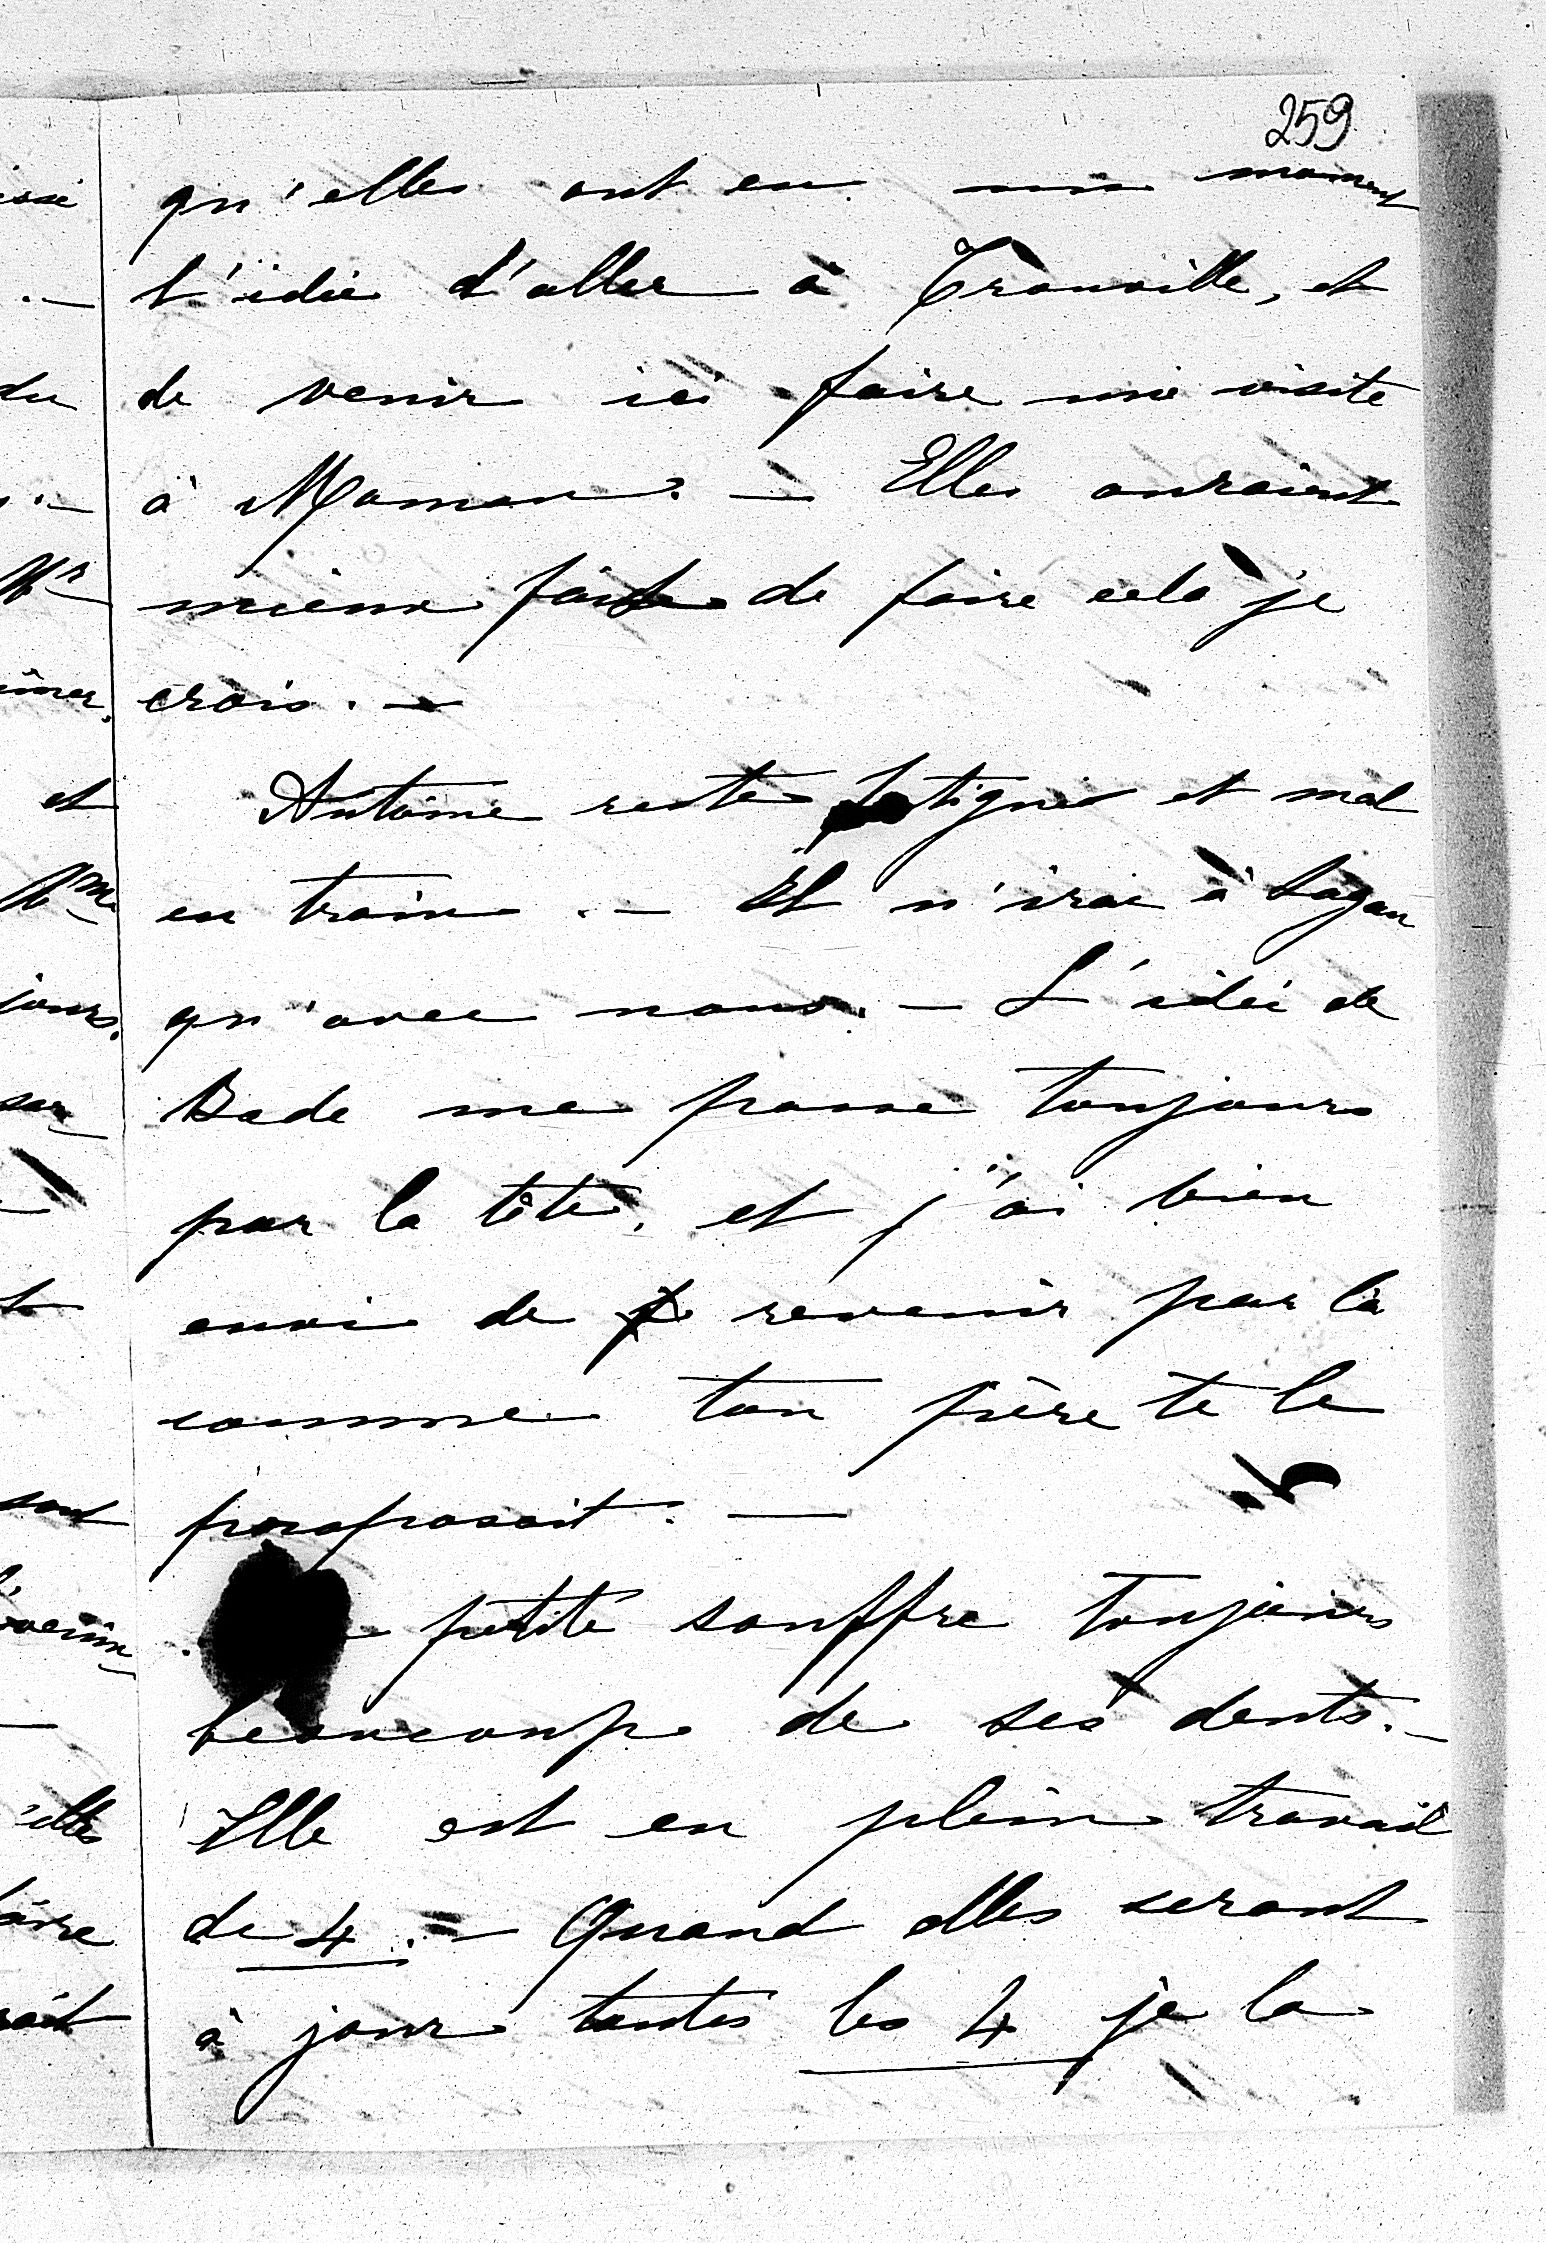 259
qu'elles ont eu un moment
l'idée d'aller à Trouville, et
de venir ici faire une visite
à Maman. — Elles auraient
mieux fait de faire cela je
crois. —
Antoine reste fatigué et mal
en train. — Il n'ira à Sagan
qu'avec nous. — L'idée de
Bade me passe toujours
par la tête, et j'ai bien
envie de revenir par là
comme ton père te le
proposait. —
petite souffre toujours
beaucoup de ses dents. —
Elle est en plein travail
de 4. — Quand elles seront
à jour toutes les 4 je la